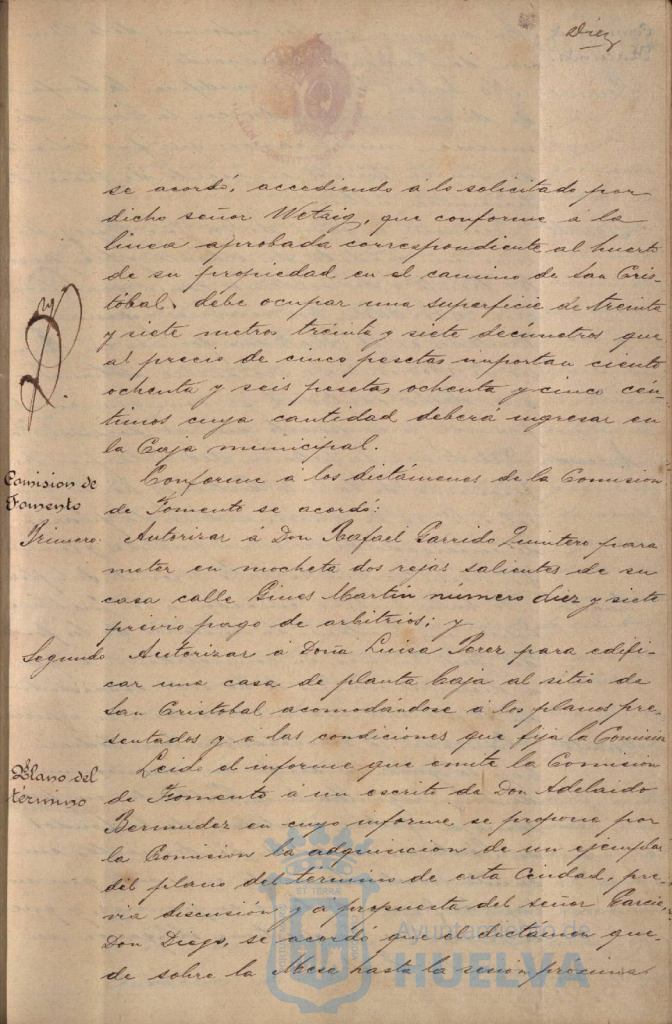 Diez
se acordó, accediendo á lo solicitado por
dicho señor Wetzig, que conforme á la
linea aprobada correspondiente al huerto
de su propiedad en el camino de San Cris-
tóbal, debe ocupar una superficie de treinta
y siete metros treinta y siete decímetros que
al precio de cinco pesetas importan ciento
ochenta y seis pesetas ochenta y cinco cén-
timos cuya cantidad deberá ingresar en
la Caja municipal.
Comision de
Fomento
Conforme a los dictámenes de la Comision
de Fomento se acordó:
Primero. Autorizar á Don Rafael Garrido Quintero para
meter en mocheta dos rejas salientes de su
casa calle Gines Martin número diez y siete
previo pago de arbitrios; y
Segundo Autorizar á Doña Luisa Perez para edifi-
car una casa de planta baja al sitio de
San Cristobal acomodándose á los planos pre-
sentados y á las condiciones que fija la Comisión
Plano del
término
Leido el informe que emite la Comision
de Fomento á un escrito de Don Adelaido
Bermudez en cuyo informe se propone por
la Comision la adquisicion de un ejemplar
del plano del término de esta Ciudad, pre-
via discusión y á propuesta del señor Garcia,
Don Diego, se acordó que el dictámen que-
de sobre la Mesa hasta la sesion próxima
Ayuntamiento de
HUELVA